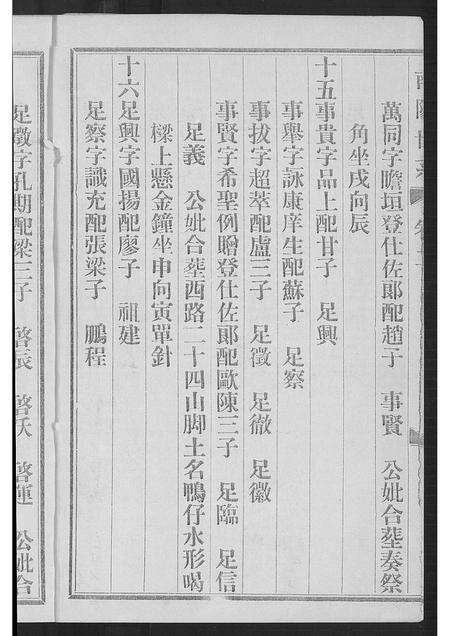 萬同字瞻垣登仕佐郞配趙子 事賢 公妣合塟奏祭
角坐戌向辰
十五事貴字品上配甘子 足興
事舉字詠康庠生配蘇子 足察
事拔字超萃配盧三子 足徵 足徹 足徽
事賢字希聖例贈登仕佐郞配歐陳三子 足臨 足信
足義 公妣合塟西路二十四山脚土名鴨仔水形喝
樑上懸金鐘坐申向寅單針
十六足興字國揚配廖子 祖建
足察字識充配張梁子 鵬程
足徵字孔期配梁三子 啓辰 啓沃 啓運 公妣合